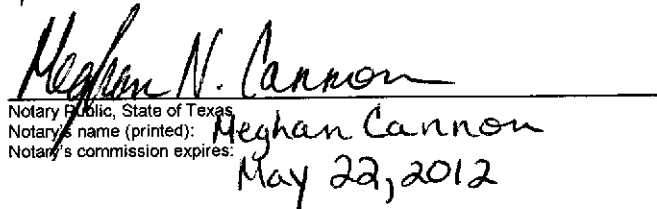 Meghan N. Cannon
Notary Public, State of Texas
Notary's name (printed): Meghan Cannon
Notary's commission expires:
May 22, 2012